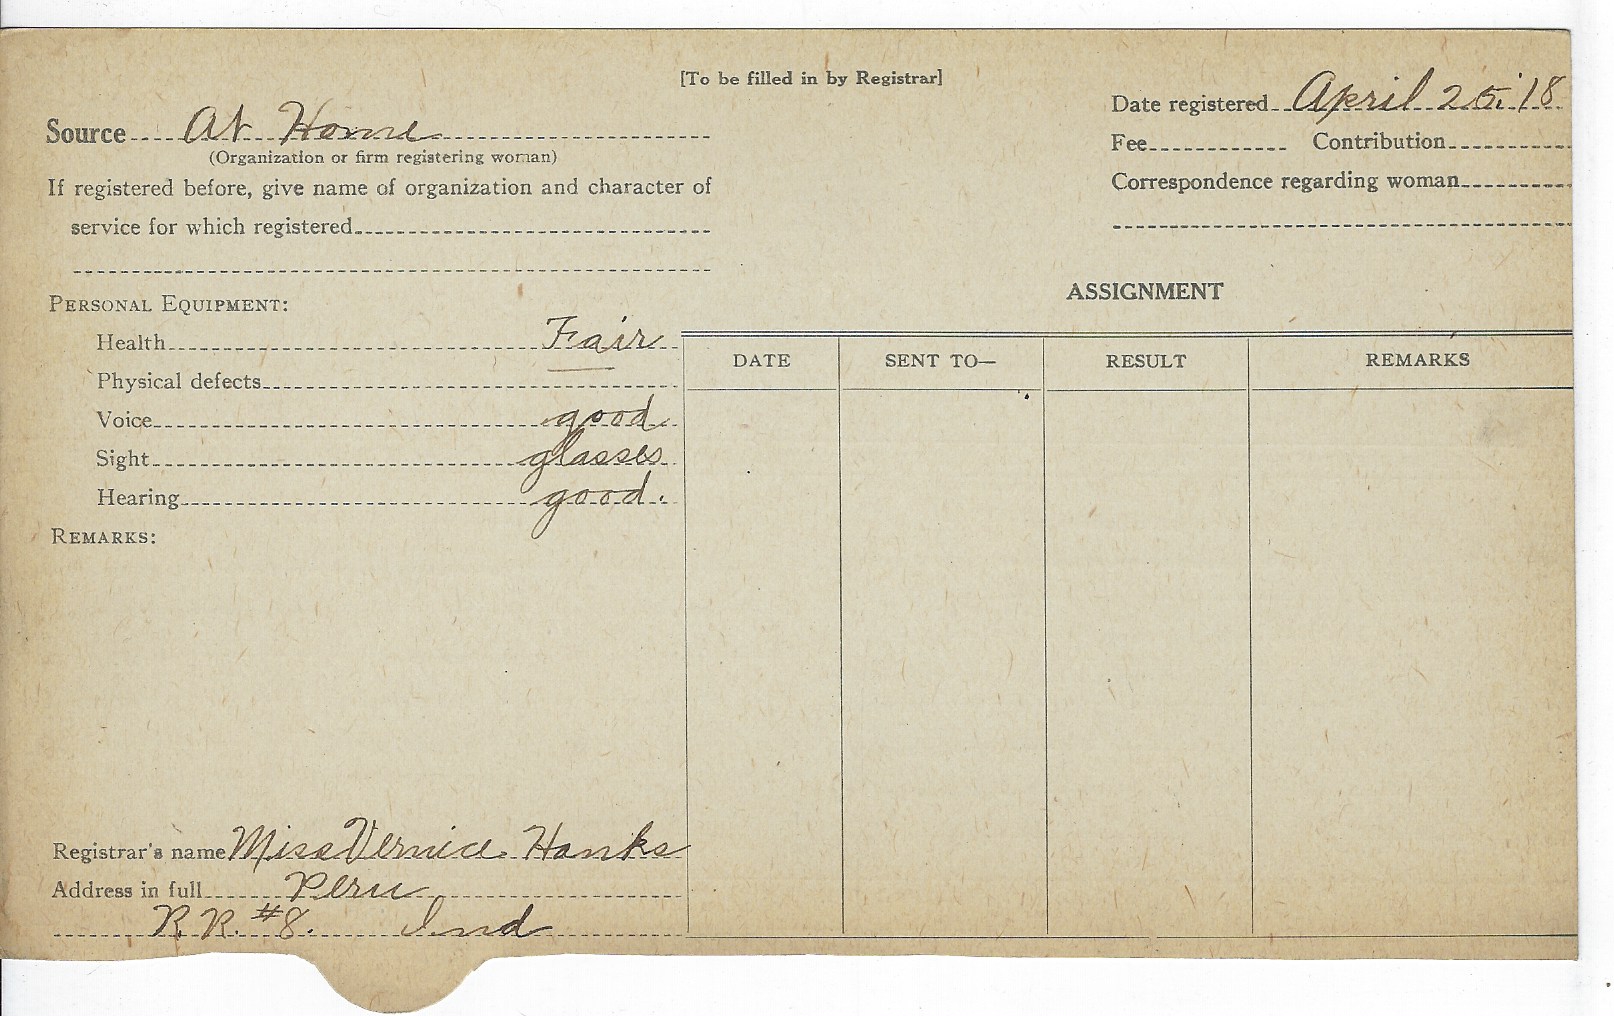 [To be filled in by Registrar]
Source At Home
(Organization or firm registering woman)
If registered before, give name of organization and character of
service for which registered
Date registered April 25, '18
Fee Contribution
Correspondence regarding woman
PERSONAL EQUIPMENT:
Health Fair
Physical defects
Voice good
Sight glasses
Hearing good.
REMARKS:
ASSIGNMENT
DATE SENT TO— RESULT REMARKS
Registrar's name Miss Vernice Hanks
Address in full Peru
R. R. #8. Ind